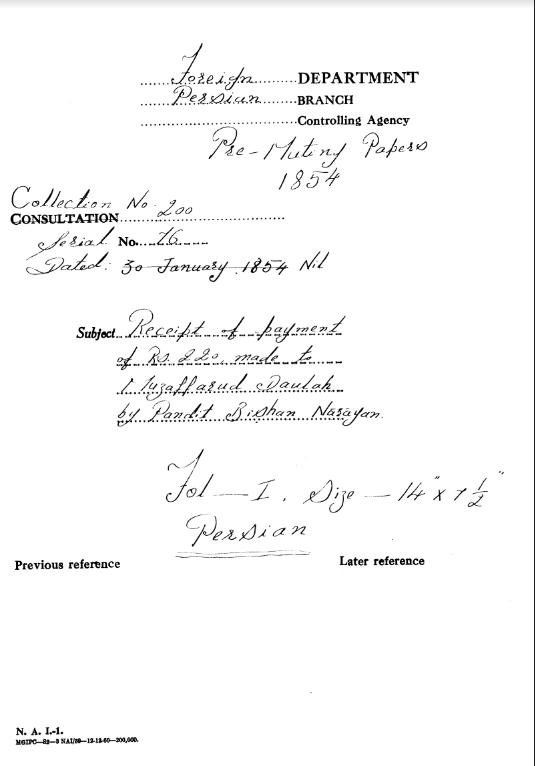 Foreign DEPARTMENT
Persian BRANCH
Controlling Agency
Pre-Mutiny Papers
1854
Collection No. 200
CONSULTATION
Serial No. 76
Dated: 30 January 1854 Nil
Subject Receipt of payment
of Rs. 220, made to
Muzaffarud Daulah
by Pandit Bishan Narayan.
Fol — I. Size — 14" x 7 1/2"
Persian
Previous reference
Later reference
N. A. I.-1.
MGIPC—S2—3 NAI/59—12-12-60—200,000.